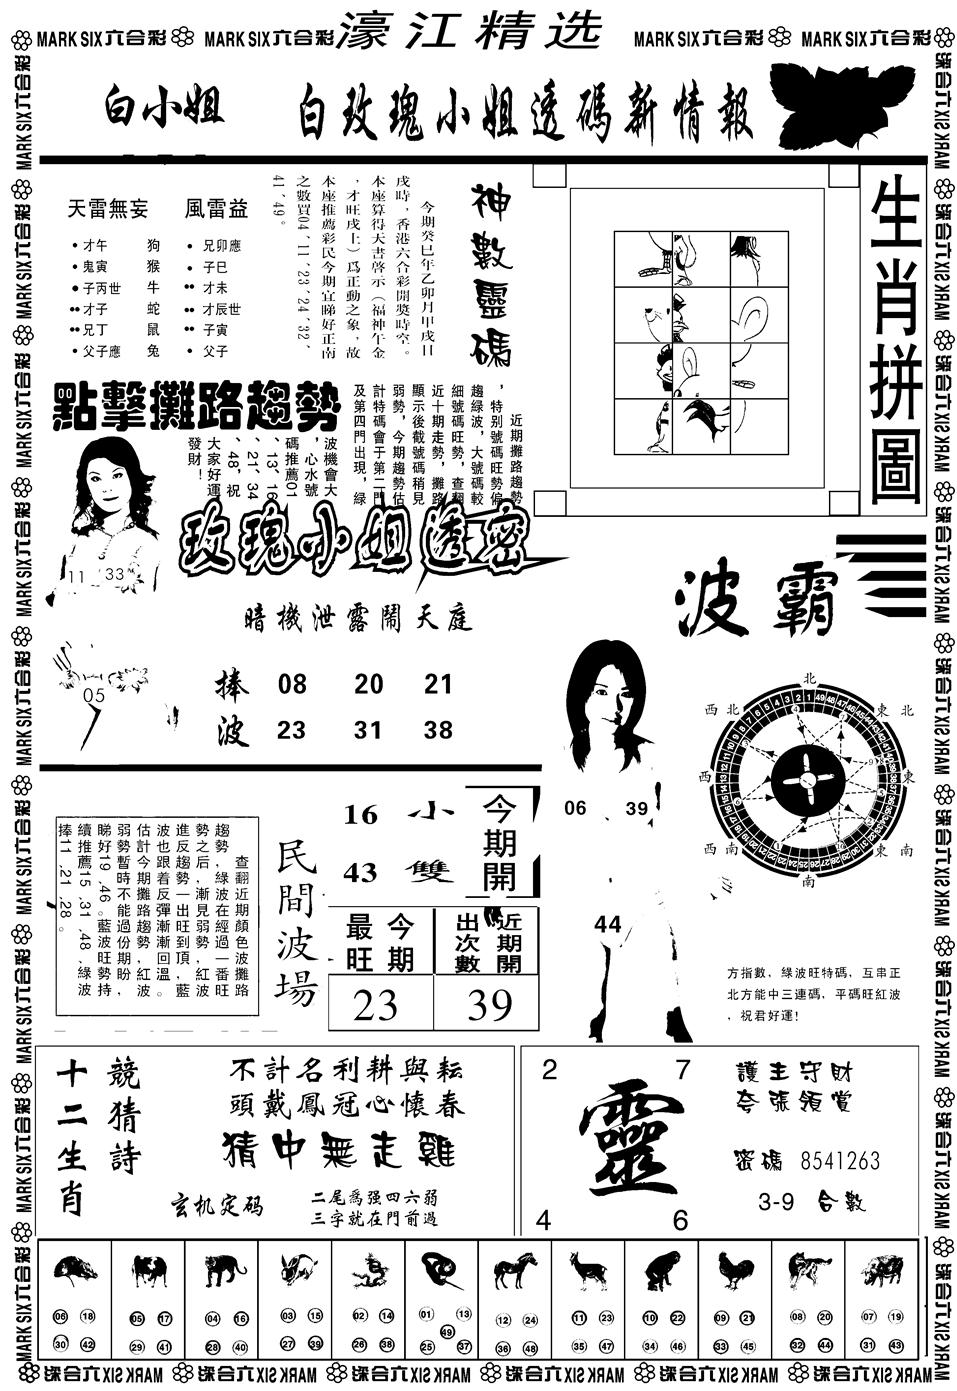 MARK SIX六合彩 MARK SIX六合彩 濠江精选 MARK SIX六合彩 MARK SIX六合彩
白小姐 白玫瑰小姐透碼新情報
天雷無妄 風雷益
• 才午 狗 • 兄卯應
• 鬼寅 猴 • 子巳
• 子丙世 牛 •• 才未
•• 才子 蛇 •• 才辰世
•• 兄丁 鼠 •• 子寅
• 父子應 兔 • 父子
神數靈碼
今期癸巳年乙卯月甲戌日
戌時，香港六合彩開獎時空。
本座算得天書啓示（福神午金
，才旺戌上）爲正動之象，故
本座推薦彩民今期宜睇好正南
之數買04、11、23、24、32、
41、49。
生肖拼圖
點擊攤路趨勢
近期攤路趨勢
，特别號碼旺勢偏
趨綠波，大號碼較
細號碼旺勢，查翻
近十期走勢，攤路
顯示後截號碼稍見
弱勢，今期趨勢估
計特碼會于第二門
及第四門出現，綠
波機會大
，心水號
碼推薦01
、13、16
、21、34
、48，祝
大家好運
發財！
11 33
05
玫瑰小姐透密
暗機泄露鬧天庭
捧 08 20 21
波 23 31 38
波霸
06 39
44
北
西北 東北
西 東
西南 東南
南
方指數，綠波旺特碼，互串正
北方能中三連碼，平碼旺紅波
，祝君好運！
查翻近期顏色波攤路
趨勢，綠波在經過一番旺
勢之后，漸見弱勢，紅波
進反趨勢一出旺到頂，藍
波也跟着反彈漸漸回溫。
估計今期攤路趨勢，紅波
弱勢暫時不能過份期盼，
睇好19、46。藍波旺勢持
續推薦15、31、48，綠波
捧11、21、28。
民間波場
16 小 今期開
43 雙
今期最旺 近期開出次數
23 39
十二生肖
競猜詩
不計名利耕與耘
頭戴鳳冠心懷春
猜中無走雞
玄机定码 二尾爲强四六弱
三字就在門前過
2 7
靈
4 6
護主守財
夸張領賞
密碼 8541263
3-9 合數
06 18 30 42
05 17 29 41
04 16 28 40
03 15 27 39
02 14 26 38
01 13 49 25 37
12 24 36 48
11 23 35 47
10 22 34 46
09 21 33 45
08 20 32 44
07 19 31 43
MARK SIX六合彩 MARK SIX六合彩 MARK SIX六合彩 MARK SIX六合彩 MARK SIX六合彩